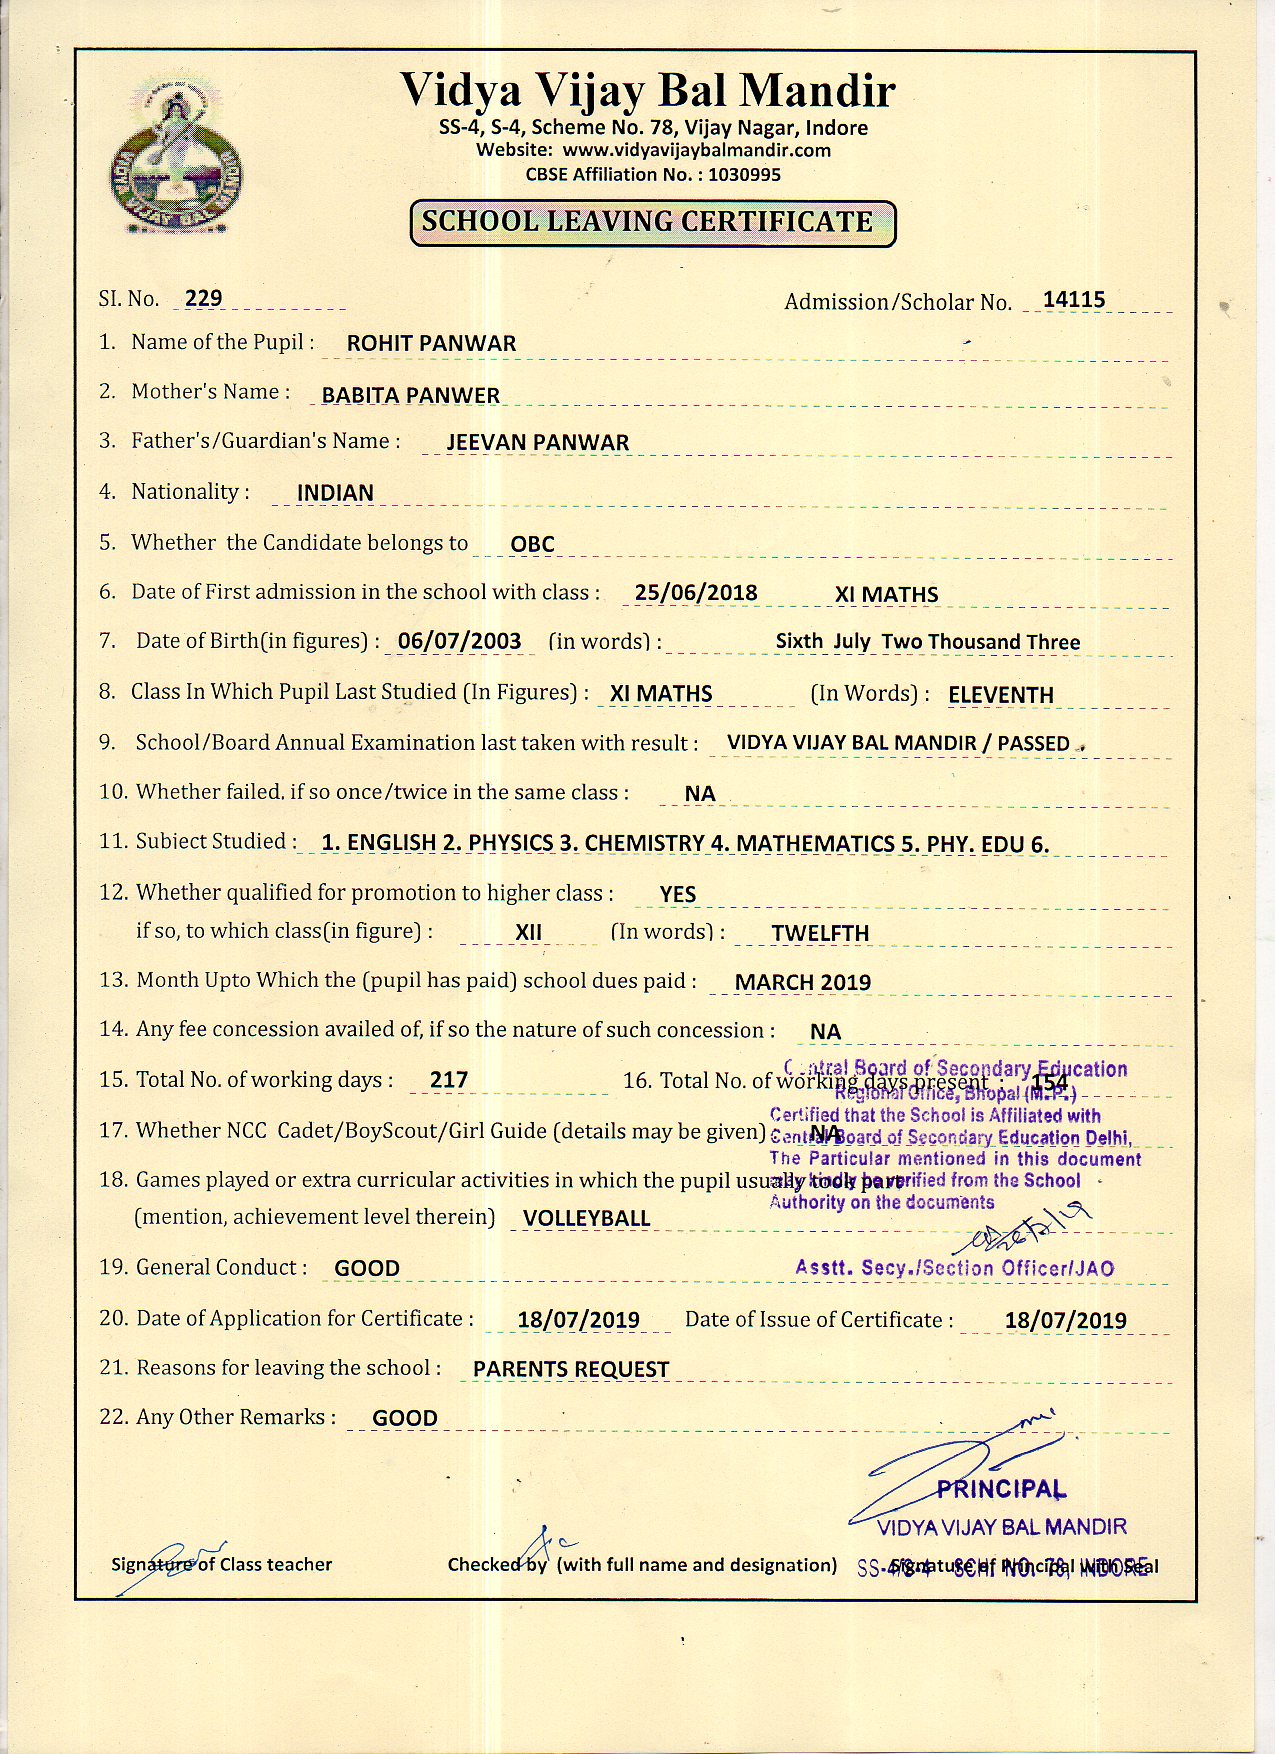 Vidya Vijay Bal Mandir
SS-4, S-4, Scheme No. 78, Vijay Nagar, Indore
Website: www.vidyavijaybalmandir.com
CBSE Affiliation No. : 1030995
VIDYA VIJAY BAL MANDIR
SCHOOL LEAVING CERTIFICATE
SI. No. 229 Admission/Scholar No. 14115
1. Name of the Pupil : ROHIT PANWAR
2. Mother's Name : BABITA PANWER
3. Father's/Guardian's Name : JEEVAN PANWAR
4. Nationality : INDIAN
5. Whether the Candidate belongs to OBC
6. Date of First admission in the school with class : 25/06/2018 XI MATHS
7. Date of Birth(in figures) : 06/07/2003 (in words) : Sixth July Two Thousand Three
8. Class In Which Pupil Last Studied (In Figures) : XI MATHS (In Words) : ELEVENTH
9. School/Board Annual Examination last taken with result : VIDYA VIJAY BAL MANDIR / PASSED
10. Whether failed, if so once/twice in the same class : NA
11. Subject Studied : 1. ENGLISH 2. PHYSICS 3. CHEMISTRY 4. MATHEMATICS 5. PHY. EDU 6.
12. Whether qualified for promotion to higher class : YES
if so, to which class(in figure) : XII (In words) : TWELFTH
13. Month Upto Which the (pupil has paid) school dues paid : MARCH 2019
14. Any fee concession availed of, if so the nature of such concession : NA
15. Total No. of working days : 217 16. Total No. of working days present : 154
17. Whether NCC Cadet/BoyScout/Girl Guide (details may be given) NA
18. Games played or extra curricular activities in which the pupil usually took part
(mention, achievement level therein) VOLLEYBALL
Central Board of Secondary Education
Regional Office, Bhopal (M.P.)
Certified that the School is Affiliated with
Central Board of Secondary Education Delhi,
The Particular mentioned in this document
may kindly be verified from the School
Authority on the documents
Asstt. Secy./Section Officer/JAO
19. General Conduct : GOOD
20. Date of Application for Certificate : 18/07/2019 Date of Issue of Certificate : 18/07/2019
21. Reasons for leaving the school : PARENTS REQUEST
22. Any Other Remarks : GOOD
PRINCIPAL
VIDYA VIJAY BAL MANDIR
SS-4/S-4 SCH NO. 78, INDORE
Signature of Class teacher Checked by (with full name and designation) Signature of Principal with Seal